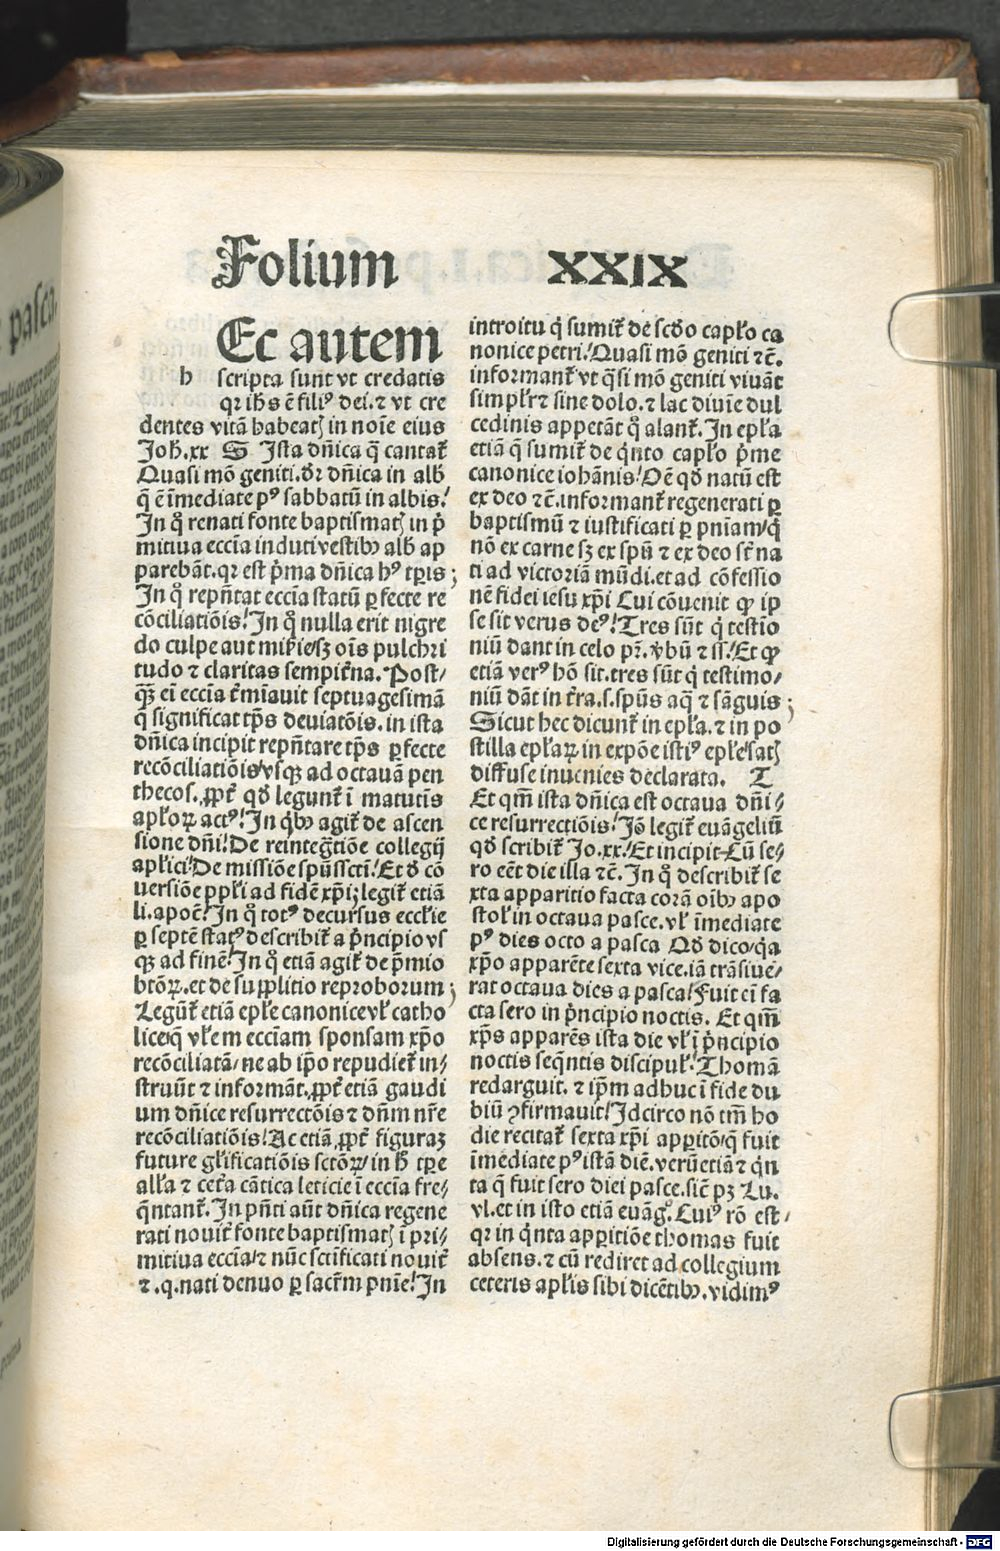 Folium XXIX
Ec autem
h scripta sunt vt credatis
qr ihs ē filiꝰ dei. ⁊ vt cre
dentes vitā habeatꝭ in noīe eius
Joh̄. xx S Ista dn̄ica q̄ cantat̃
Quasi mō geniti. dr̄ dn̄ica in alb̄
q̄ ē īmediate pꝰ sabbatū in albis!
In q̊ renati fonte baptismatꝭ in p̓
mitiua eccīa induti vestibꝫ alb̄ ap
parebāt. qr est p̓ma dn̄ica hꝰ tp̄is;
In q̊ repn̄tat eccīa statū ꝑfecte re
cōciliatiōis! In q̊ nulla erit nigre
do culpe aut mis̄ie/sꝫ oīs pulchri
tudo ⁊ claritas sempit̃na. Post/
q̄ꝫ ei eccīa t̃mīauit septuagesimā
q̄ significat tp̄s deuiatōis. in ista
dn̄ica incipit repn̄tare tp̄s ꝑfecte
recōciliatiōis vsqꝫ ad octauā pen
thecos. ꝓpt̃ qd̄ legunt̃ ī matutīs
apl̄oꝝ actꝰ! In q̓bꝫ agit̃ de ascen
sione dn̄i! De reintegr̄tiōe collegij
apl̄ici! De missiōe spūssctī! Et d̄ cō
uersiōe ppl̄i ad fidē xp̄i; legit̃ etiā
li. apoc̄! In q̊ totꝰ decursus eccl̄ie
ꝑ septē statꝰ describit̃ a p̓ncipio vs
qꝫ ad finē! In q̊ etiā agit̃ de p̄mio
btōꝝ. et de supplitio reproborum;
Legūt̃ etiā epl̄e canonice vl̄ catho
lice/q̄ vl̄em ecciam sponsam xp̄o
recōciliatā/ne ab ip̄o repudiet̃ in/
struūt ⁊ informāt. ꝓpt̃ etiā gaudi
um dn̄ice resurrectōis ⁊ dn̄m nr̄e
recōciliatiōis! Ac etiā ꝓpt̃ figuraꝫ
future gl̄ificatiōis sctōꝝ/in h̄ tp̄e
all̄a ⁊ cet̃a cātica leticie ī eccīa fre/
q̄ntant̃. In pn̄ti aūt dn̄ica regene
rati nouit̃ fonte baptismatꝭ ī pri/
mitiua eccīa/⁊ nūc sctīficati nouit̃
⁊. q. nati denuo ꝑ sacr̄m pnīe! In
introitu q̓ sumit̃ de scd̄o capl̄o ca
nonice petri! Quasi mō geniti ⁊c̄.
informant̃ vt q̄si mō geniti viuāt
simplr̄ ⁊ sine dolo. ⁊ lac diuīe dul
cedinis appetāt q̊ alant̃. In epl̄a
etiā q̄ sumit̃ de q̓nto capl̄o p̓me
canonice iohānis! Oē qd̄ natū est
ex deo ⁊c̄. informant̃ regenerati ꝑ
baptismū ⁊ iustificati ꝑ pnīam/q̓
nō ex carne sꝫ ex spū ⁊ ex deo st̄ na
ti ad victoriā mūdi. et ad cōfessio
nē fidei iesu xp̄i Cui cōuenit ꝙ ip
se sit verus deꝰ! Tres sūt q̓ testīo
niū dant in celo pr̄. v̓bū ⁊ ss̄! Et ꝙ
etiā verꝰ hō sit. tres sūt q̓ testimo/
niū dāt in t̃ra. s. spūs aq̄ ⁊ sāguis;
Sicut hec dicunt̃ in epl̄a. ⁊ in po
stilla epl̄aꝝ in expōe istiꝰ epl̄e/satꝭ
diffuse inuenies declarata. T
Et qm̄ ista dn̄ica est octaua dn̄i/
ce resurrectiōis! Jō legit̃ euāgeliū
qd̄ scribit̃ Jo. xx! Et incipit Cū se/
ro eēt die illa ⁊c̄. In q̊ describit̃ se
xta apparitio facta corā oībꝫ apo
stol̄ in octaua pasce. vl̄ īmediate
pꝰ dies octo a pasca Qd̄ dico/q̓a
xp̄o apparēte sexta vice. iā trāsiue/
rat octaua dies a pasca! Fuit ei fa
cta sero in p̓ncipio noctis. Et qm̄
xp̄s apparēs ista die vl̄ ī p̓ncipio
noctis seq̄ntis discipul̄! Thomā
redarguit. ⁊ ip̄m adhuc ī fide du
biū ꝯfirmauit! Idcirco nō tm̄ ho
die recitat̃ sexta xp̄i apparitō/q̄ fuit
īmediate pꝰ istā diē. verūetiā ⁊ q̓n
ta q̄ fuit sero diei pasce. sic̄ pꝫ Lu.
vl. et in isto etiā euāg. Cuiꝰ rō est/
qr in q̓nta apparitiōe thomas fuit
absens. ⁊ cū rediret ad collegium
ceteris apl̄is sibi dicētibꝫ. vidimꝰ
Digitalisierung gefördert durch die Deutsche Forschungsgemeinschaft - DFG